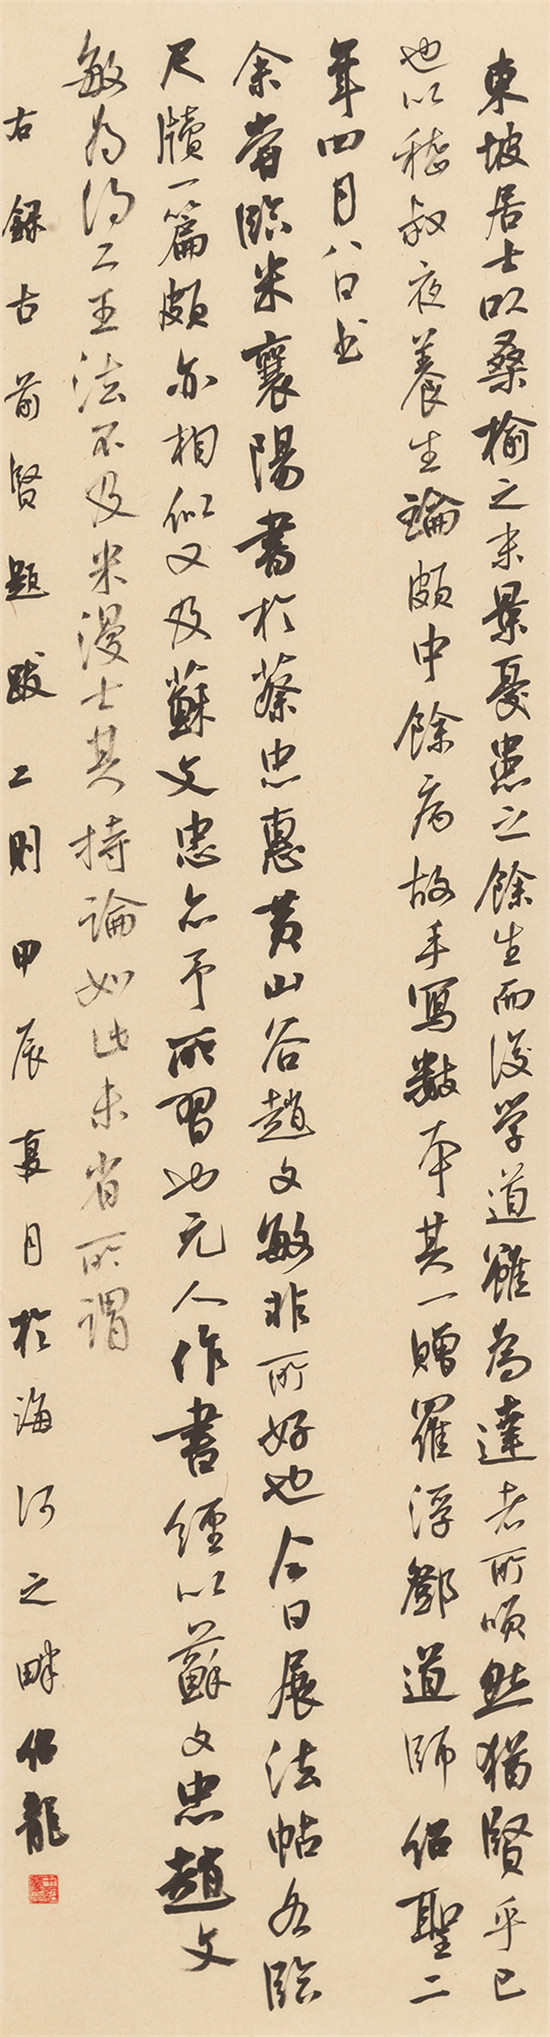 東坡居士以桑榆之末景憂患之餘生而後学道雖為達者所笑然猶賢乎已
也以嵇叔夜養生論頗中餘病故手寫數本其一贈羅浮鄧道師紹聖二
年四月八日书
余嘗臨米襄陽書於蔡忠惠黄山谷趙文敏非所好也今日展法帖各臨
尺牘一篇頗亦相似又及蘇文忠亦予所習也元人作書經以蘇文忠趙文
敏為得二王法不及米漫士其持論如此未省所謂
右録古前賢題跋二則 甲辰夏月於海河之畔 紹龍